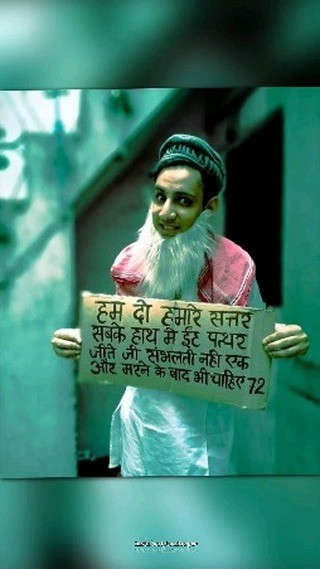 हम दो हमारे सत्तर
सबके हाथ मे ईट पत्थर
जीते जी संभलती नही एक
और मरने के बाद भी चाहिए 72